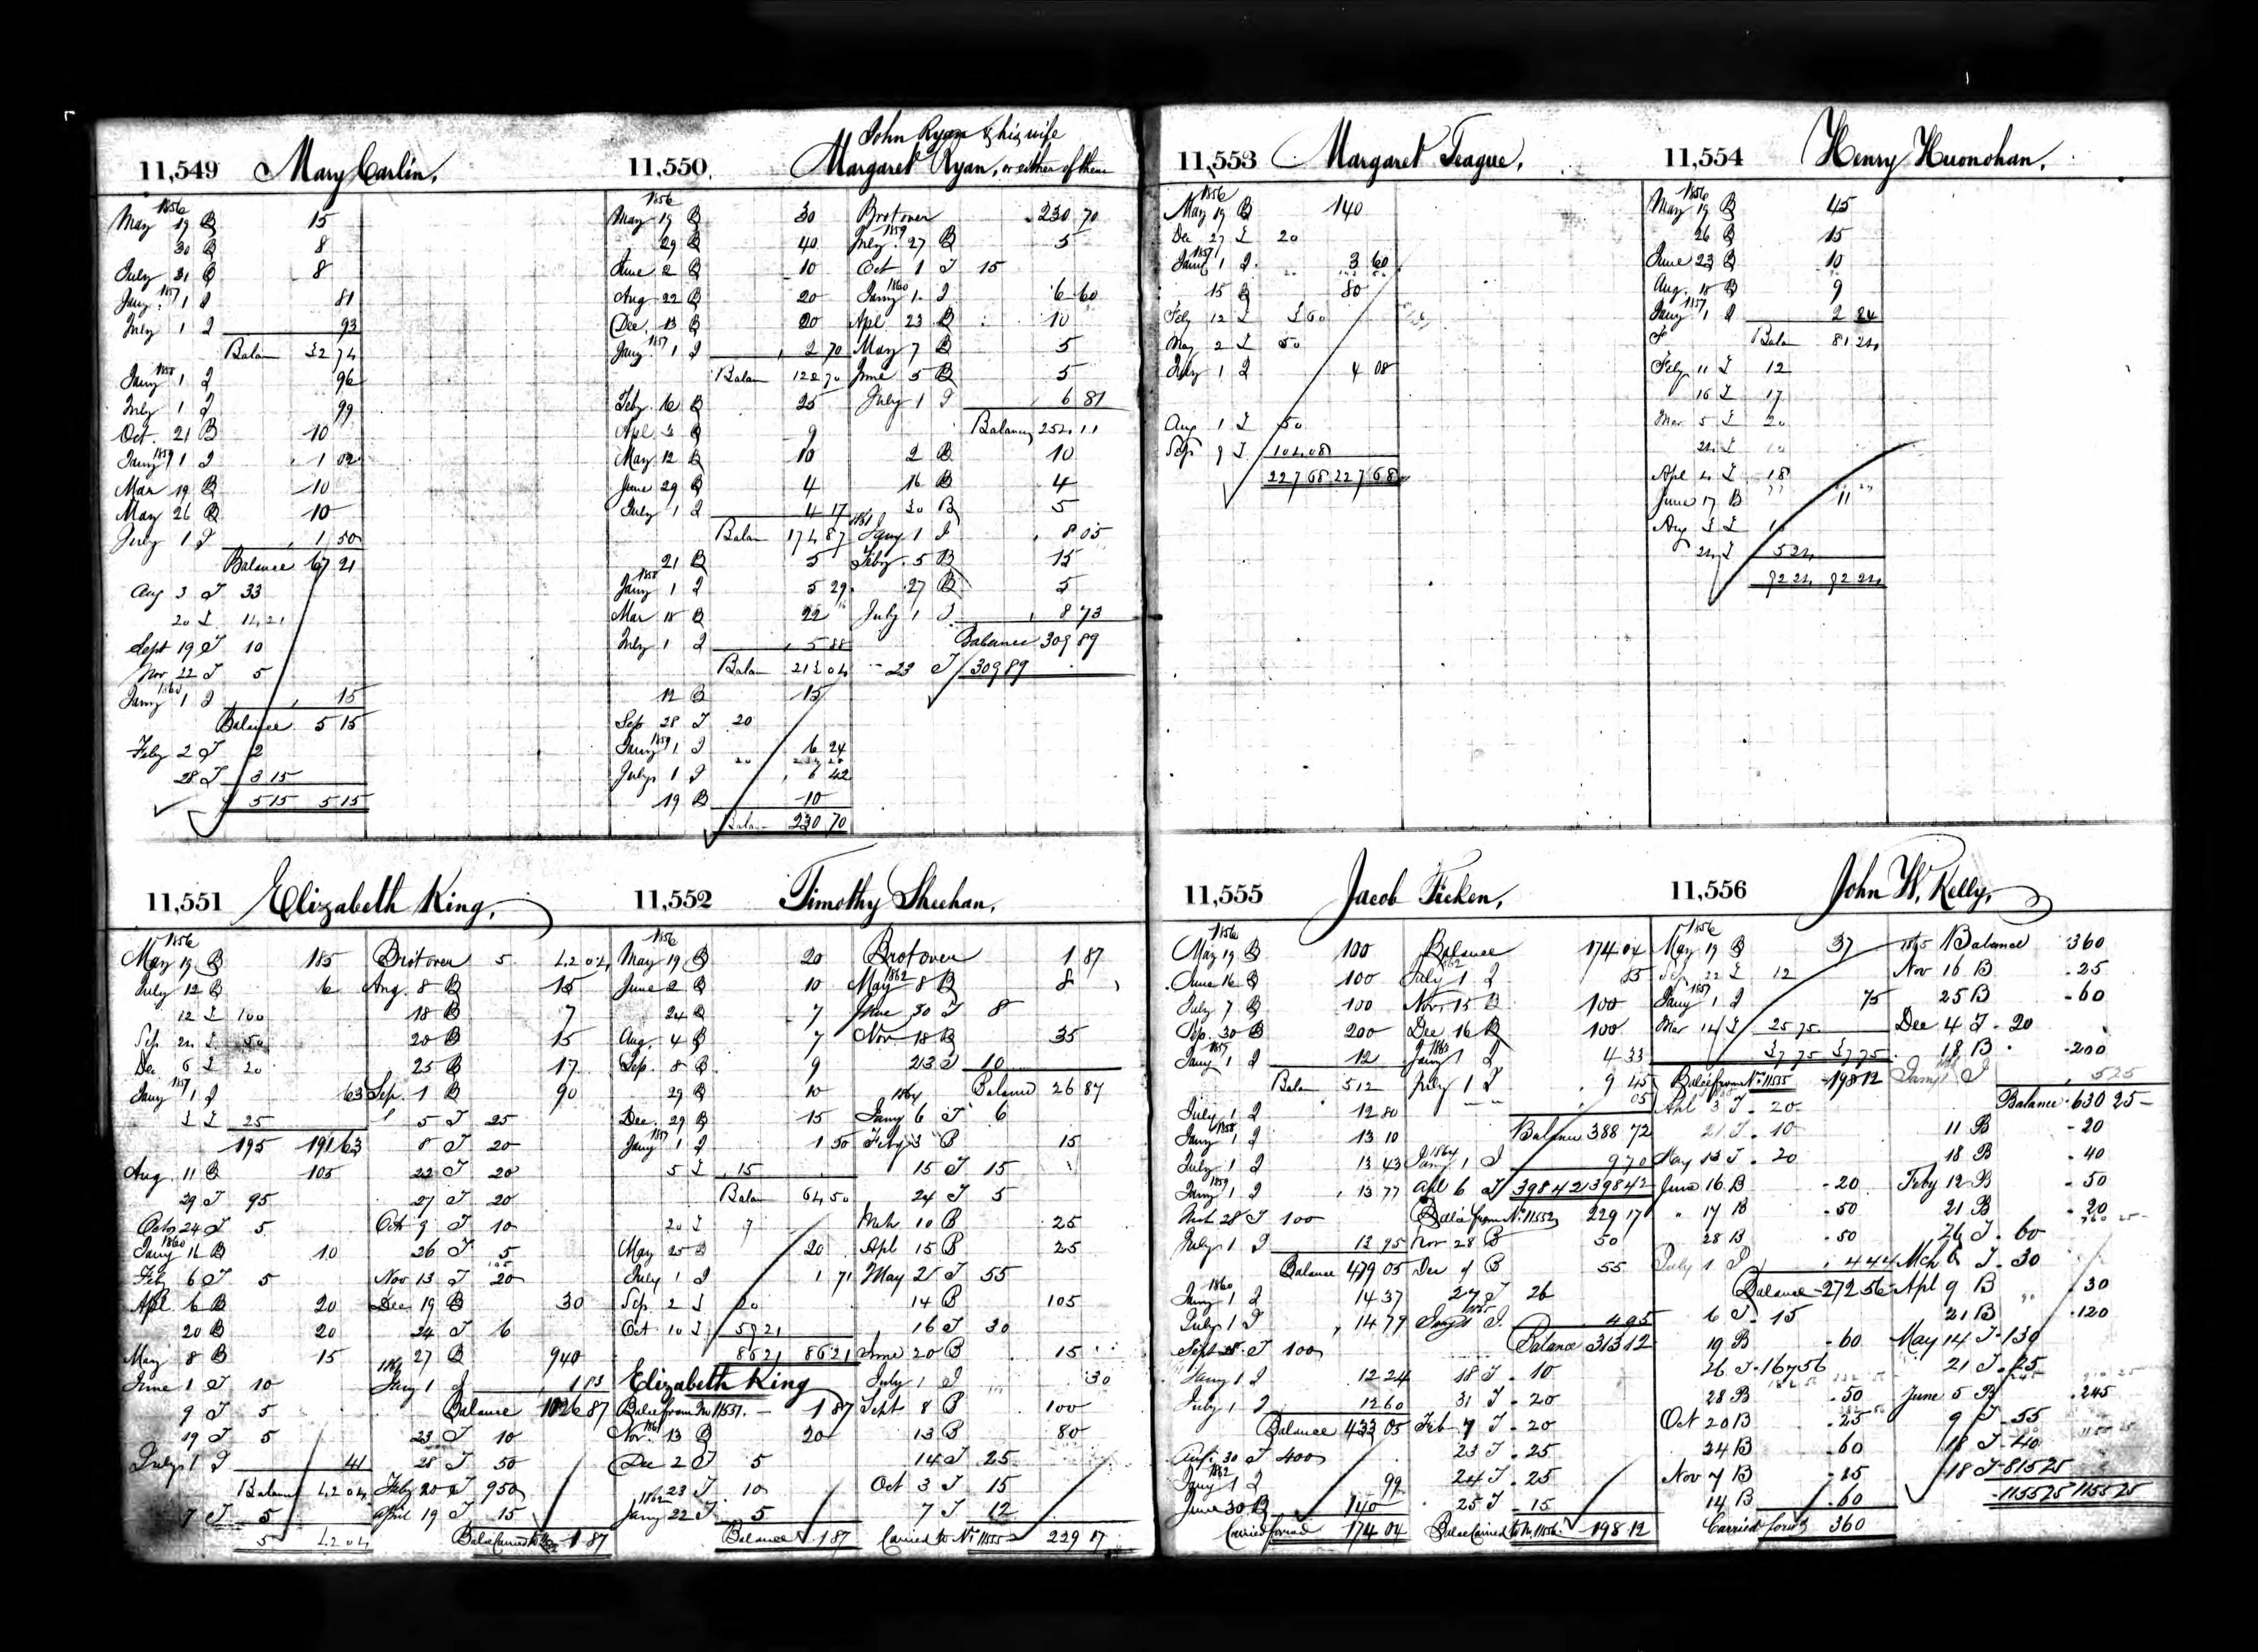 11,549 Mary Carlin,
1856
May 19 B 15
30 B 8
July 31 B 8
Jany 1857 1 I 81
July 1 I 93
Balan 32 74
Jany 1858 1 I 96
July 1 I 99
Oct. 21 B 10
Jany 1859 1 I 1 02
Mar 19 B 10
May 26 B 10
July 1 I 1 50
Balance 67 21
Aug 3 T 33
20 T 14 21
Sept 19 T 10
Nov 22 T 5
Jany 1860 1 I 15
Balance 5 15
Feby 2 T 2
28 T 3 15
5 15 5 15
11,550 John Ryan & his wife
Margaret Ryan, or either of them
1856
May 19 B 30
29 B 40
June 2 B 10
Aug 22 B 20
Dec. 13 B 20
Jany 1857 1 I 2 70
Balan 122 70
Feby. 16 B 25
Apl 3 B 9
May 12 B 10
June 29 B 4
July 1 I 4 17
Balan 174 87
21 B 5
Jany 1858 1 I 5 29
Mar 18 B 22
July 1 I 5 88
Balan 213 04
12 B 15
Sep 28 T 20
Jany 1859 1 I 6 24
July 1 I 6 42
19 B 10
Balan 230 70
Brot over 230 70
1859
July 27 B 5
Oct 1 T 15
1860
Jany 1 I 6 60
Apl 23 B 10
May 7 B 5
June 5 B 5
July 1 I 6 81
Balance 254 11
2 B 10
16 B 4
30 B 5
1861
Jany 1 I 8 05
Feby. 5 B 15
27 B 5
July 1 I 8 73
Balance 309 89
23 T 309 89
11,553 Margaret Teague,
1856
May 19 B 140
Dec 27 T 20
Jany 1857 1 I 3 60
15 B 80
Feby 12 T 50
May 2 T 50
July 1 I 4 08
Aug 1 T 50
Sep 9 T 104 08
227 68 227 68
11,554 Henry Huonohan.
1856
May 19 B 45
26 B 15
June 23 B 10
Aug. 18 B 9
Jany 1857 1 I 2 24
Balan 81 24
Feby 11 T 12
16 T 17
Mar 5 T 20
24 T 10
Apl 4 T 18
June 17 B 11
Aug 3 T 10
24 T 5 24
92 24 92 24
11,551 Elizabeth King,
1856
May 19 B 185
July 12 B 6
12 T 100
Sep 24 T 50
Dec 6 T 20
Jany 1857 1 I 63
3 T 25
195 191 63
Aug. 11 B 105
29 T 95
Octo 24 T 5
1860
Jany 16 B 10
Feb 6 T 5
Apl 6 B 20
20 B 20
May 8 B 15
June 1 T 10
9 T 5
19 T 5
July 1 I 41
Balance 42 04
7 T 5
5 42 04
Brot over 5 42 04
Aug. 8 B 15
18 B 7
20 B 15
25 B 17
Sep. 1 B 90
5 T 25
8 T 20
22 T 20
27 T 20
Oct 9 T 10
26 T 5
Nov 13 T 20
Dec 19 B 30
24 T 6
27 B 940
1861
Jany 1 I 1 83
Balance 1026 87
23 T 10
28 T 50
Feby 20 T 950
April 19 T 15
1 87
11,552 Timothy Sheehan,
1856
May 19 B 20
June 2 B 10
24 B 7
Aug. 4 B 7
Sep. 8 B 9
29 B 10
Dec. 29 B 15
Jany 1857 1 I 1 50
5 T 15
Balan 64 50
20 T 7
May 25 B 20
July 1 I 1 71
Sep. 2 T 20
Oct. 10 T 59 21
86 21 86 21
Elizabeth King
Balce from No 11551. 1 87
1861
Nov. 13 B 20
Dec 2 T 5
23 T 10
1862
Jany 22 T 5
Balance 1 87
Brot over 1 87
1862
May 8 B 8
June 30 T 8
Nov 18 B 35
23 T 10
Balance 26 87
1864
Jany 6 T 6
Feby 3 B 15
15 T 15
24 T 5
Mch 10 B 25
Apl 15 B 25
May 2 T 55
14 B 105
16 T 30
June 20 B 15
July 1 I 30
Sept 8 B 100
13 B 80
14 T 25
Oct 3 T 15
7 T 12
Carried to No 11555 229 17
11,555 Jacob Ficken,
1856
May 19 B 100
June 16 B 100
July 7 B 100
Sep. 30 B 200
Jany 1857 1 I 12
Balan 512
July 1 I 12 80
Jany 1858 1 I 13 10
July 1 I 13 43
Jany 1859 1 I 13 77
Mch 28 T 100
July 1 I 13 95
Balance 479 05
1860
Jany 1 I 14 37
July 1 I 14 79
Sept 28 T 100
Jany 1 I 12 24
July 1 I 12 60
Balance 433 05
Aug. 30 T 400
1862
Jany 1 I 99
June 30 B 140
Carried forward 174 04
Balance 174 04
1862
July 1 I 85
Nov. 15 B 100
Dec 16 B 100
1863
Jany 1 I 4 33
July 1 I 9 45
05
Balance 388 72
1864
Jany 1 I 9 70
Apl 6 T 398 42 398 42
Balce from No 11552 229 17
Nov 28 B 50
Dec 9 B 55
27 T 26
1865
Jany 1 I 4 95
Balance 313 12
18 T 10
31 T 20
Feb 7 T 20
23 T 25
24 T 25
25 T 15
Balce Carried to No 11556. 198 12
11,556 John W. Kelly,
1856
May 19 B 37
Sep. 22 T 12
1857
Jany 1 I 75
Mar 14 T 25 75
37 75 37 75
Balce from No 11555 198 12
Apl 3 T 20
21 T 10
May 13 T 20
June 16 B 20
" 17 B 50
28 B 50
July 1 I 4 44
Balance 272 56
6 T 15
19 B 60
26 T 167 56
28 B 50
Oct 20 B 25
24 B 60
Nov 7 B 25
14 B 60
Carried forwd 360
1865 Balance 360
Nov 16 B 25
25 B 60
Dec 4 T 20
18 B 200
Jany I 5 25
Balance 630 25
11 B 20
18 B 40
Feby 12 B 50
21 B 20
26 T 60
Mch 6 T 30
Apl 9 B 30
21 B 120
May 14 T 130
21 T 25
June 5 B 245
9 T 55
18 T 40
18 T 815 25
1155 25 1155 25